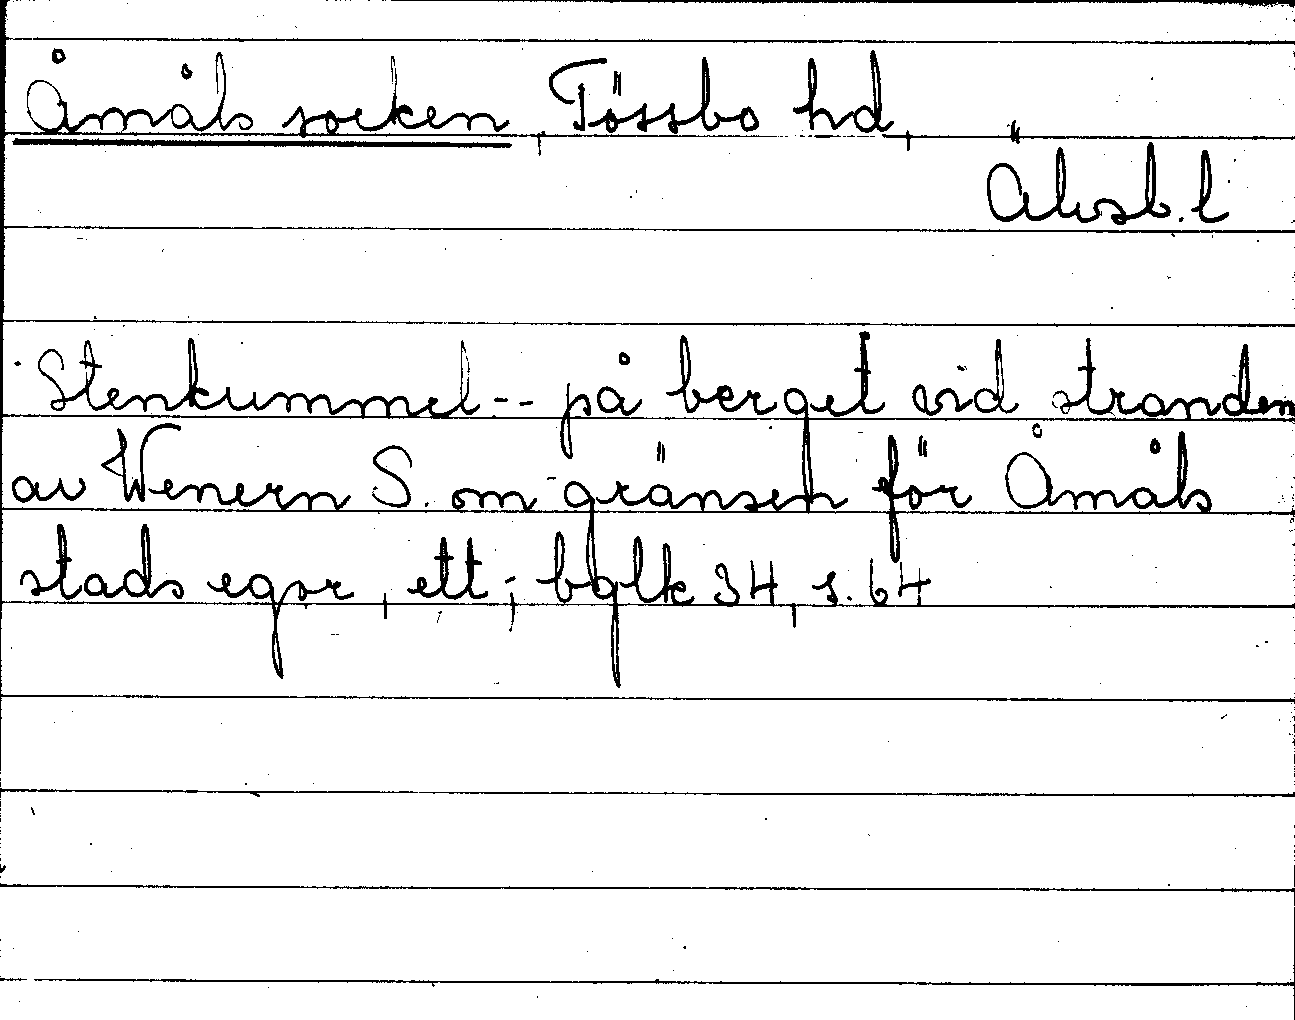 Åmåls socken, Tössbo hd,
Älvsb. l
Stenkummel -- på berget vid stranden
av Wenern S. om gränsen för Åmåls
stads egor, ett; bglk 34, s. 64